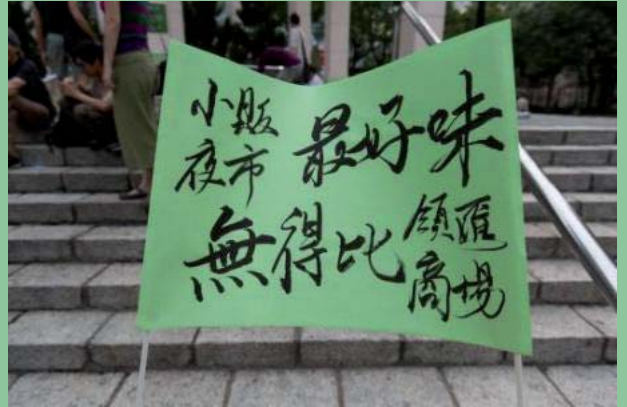 小販夜市 最好味
無得比 領匯商場